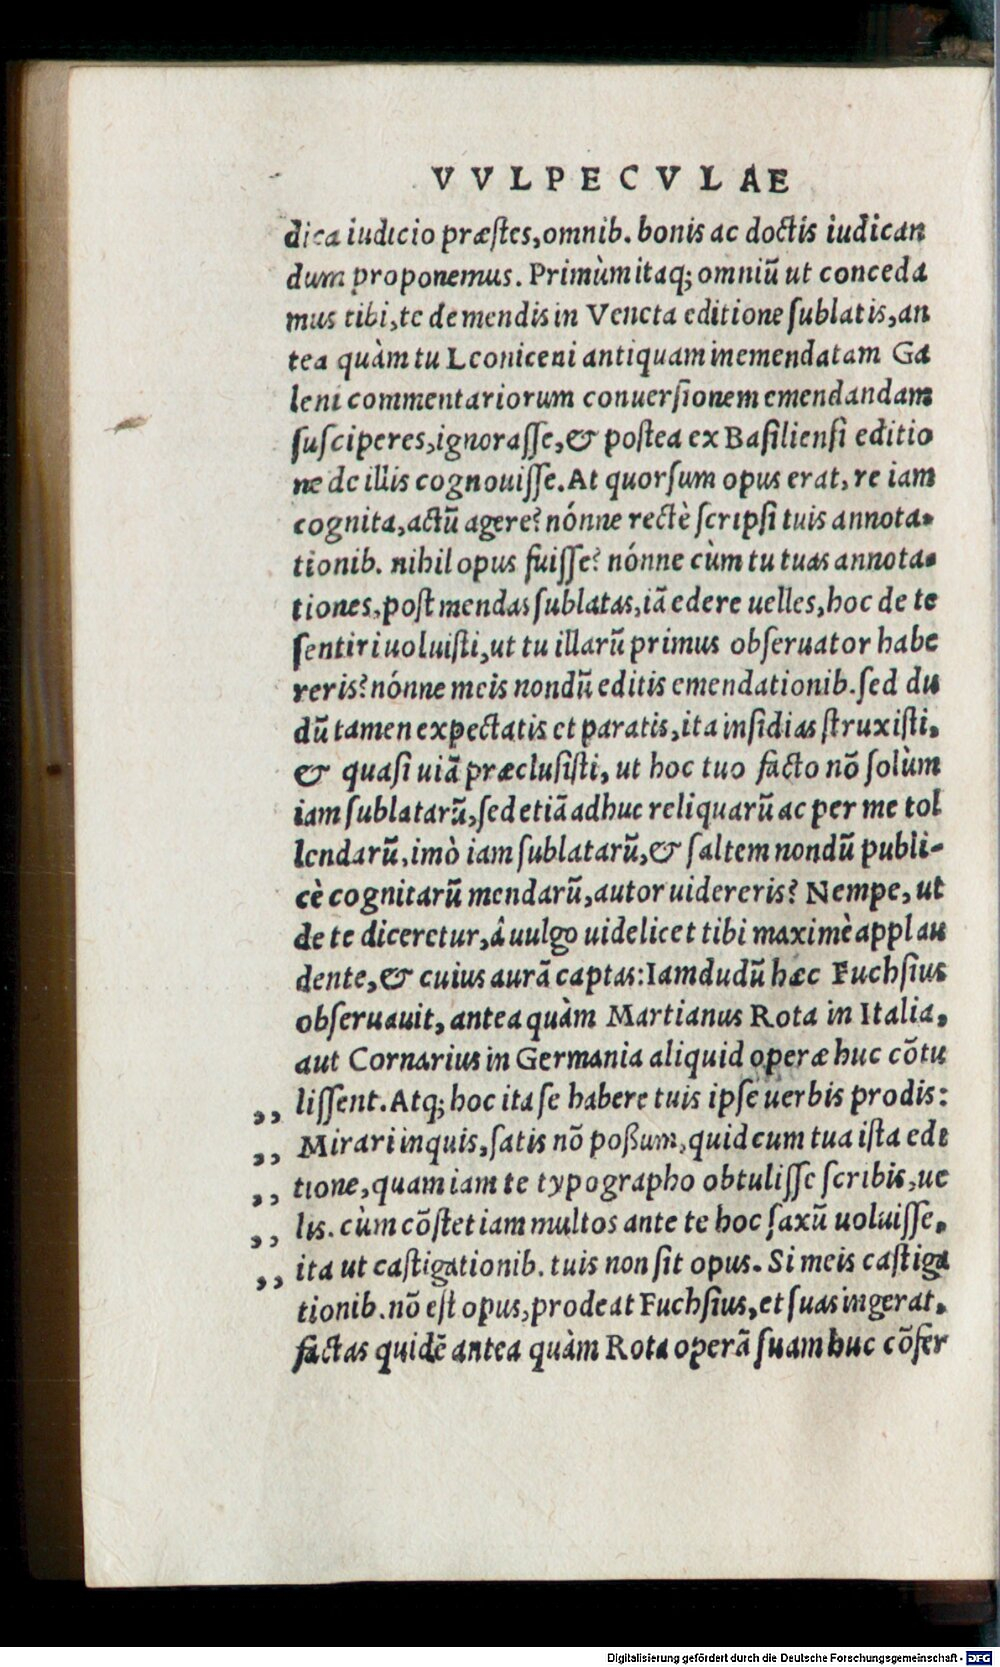 VVLPECVLAE
dica iudicio præstes, omnib. bonis ac doctis iudican
dum proponemus. Primùm itaq; omniũ ut conceda
mus tibi, te de mendis in Veneta editione sublatis, an
tea quàm tu Leoniceni antiquam inemendatam Ga
leni commentariorum conuersionem emendandam
susciperes, ignorasse, & postea ex Basiliensi editio
ne de illis cognouisse. At quorsum opus erat, re iam
cognita, actũ agere? nónne rectè scripsi tuis annota-
tionib. nihil opus fuisse? nónne cùm tu tuas annota-
tiones, post mendas sublatas, iã edere uelles, hoc de te
sentiri uoluisti, ut tu illarũ primus obseruator habe
reris? nónne meis nondũ editis emendationib. sed du
dũ tamen expectatis et paratis, ita insidias struxisti,
& quasi uiã præclusisti, ut hoc tuo facto nõ solùm
iam sublatarũ, sed etiã adhuc reliquarũ ac per me tol
lendarũ, imò iam sublatarũ, & saltem nondũ publi-
cè cognitarũ mendarũ, autor uidereris? Nempe, ut
de te diceretur, â uulgo uidelicet tibi maximè applau
dente, & cuius aurã captas: Iamdudũ hæc Fuchsius
obseruauit, antea quàm Martianus Rota in Italia,
aut Cornarius in Germania aliquid operæ huc cõtu
,, lissent. Atq; hoc ita se habere tuis ipse uerbis prodis:
,, Mirari inquis, satis nõ poßum, quid cum tua ista edi
,, tione, quam iam te typographo obtulisse scribis, ue
,, lis. cùm cõstet iam multos ante te hoc saxũ uoluisse,
,, ita ut castigationib. tuis non sit opus. Si meis castiga
tionib. nõ est opus, prodeat Fuchsius, et suas ingerat,
factas quidẽ antea quàm Rota operã suam huc cõfer
Digitalisierung gefördert durch die Deutsche Forschungsgemeinschaft - DFG